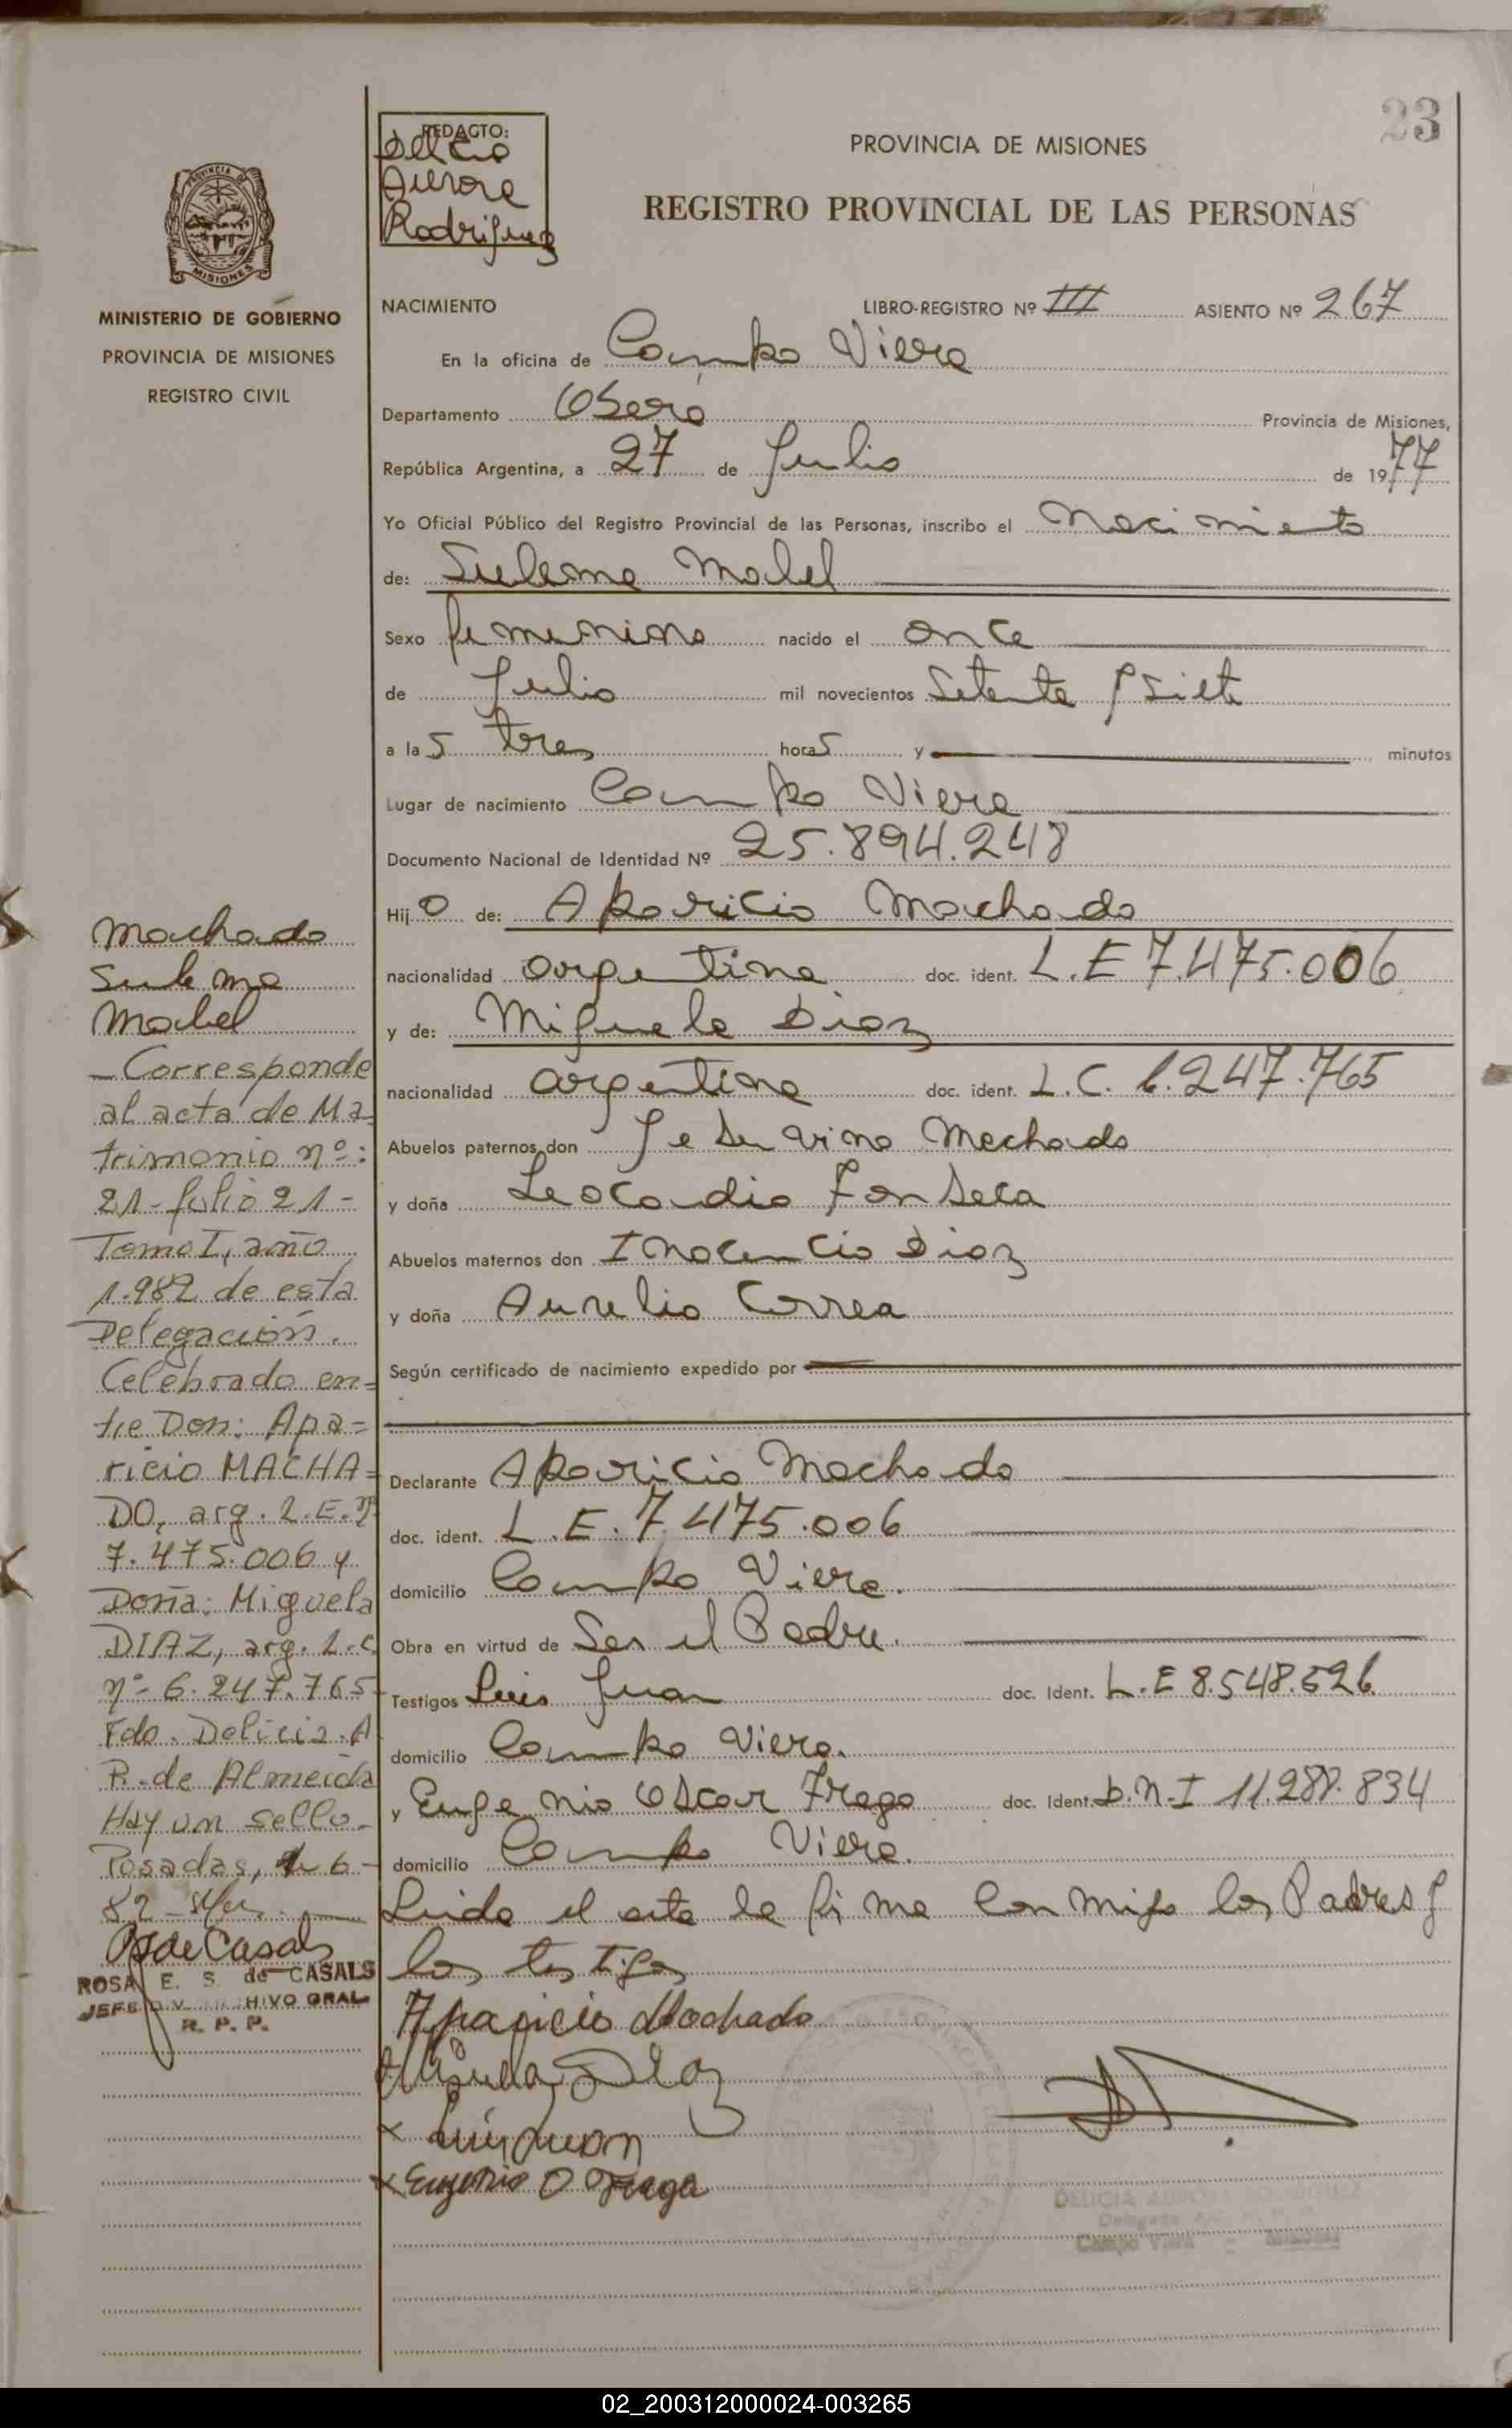 23
REDACTO:
Delicia
Aurora
Rodriguez
PROVINCIA DE MISIONES
REGISTRO PROVINCIAL DE LAS PERSONAS
PROVINCIA DE
MISIONES
MINISTERIO DE GOBIERNO
PROVINCIA DE MISIONES
REGISTRO CIVIL
NACIMIENTO LIBRO-REGISTRO Nº III ASIENTO Nº 267
En la oficina de Campo Viera
Departamento Obera Provincia de Misiones,
República Argentina, a 27 de Julio de 1977
Yo Oficial Público del Registro Provincial de las Personas, inscribo el Nacimiento
de: Sulema Mabel
Sexo femenino nacido el once
de Julio mil novecientos Setenta y siete
a las tres horas y minutos
Lugar de nacimiento Campo Viera
Documento Nacional de Identidad Nº 25.894.248
Hijo de: Aparicio Machado
nacionalidad argentina doc. ident. L.E 7.475.006
y de: Miguela Diaz
nacionalidad argentina doc. ident. L.C. 6.247.765
Abuelos paternos don Machado
y doña Leocadia Fonseca
Abuelos maternos don Inocencio Diaz
y doña Aurelia Correa
Según certificado de nacimiento expedido por
Declarante Aparicio Machado
doc. ident. L.E. 7.475.006
domicilio Campo Viera.
Obra en virtud de Ser el Padre.
Testigos Luis Juan doc. Ident. L.E 8.548.526
domicilio Campo Viera.
y Eugenio Oscar Fraga doc. Ident. D.N.I 11.288.834
domicilio Campo Viera.
Leida el acta la firma conmigo los Padres y
los testigos
Aparicio Machado
Miguela Diaz
x Luis Juan
x Eugenio O Fraga
DELICIA AURORA RODRIGUEZ
Campo Viera - Misiones
Machado
Sulema
Mabel
- Corresponde
al acta de Ma
trimonio nº:
21 - folio 21 -
Tomo I, año
1.982 de esta
Delegación.
Celebrado en=
tre Don: Apa=
ricio MACHA=
DO, arg. L.E. nº
7.475.006 y
Doña: Miguela
DIAZ, arg. L.C.
nº 6.247.765
Fdo. Delicia. A
R. de Almeida
Hay un sello.
Posadas, 6-
82
R de Casals
ROSA E. S. de CASALS
JEFE DIV. ARCHIVO GRAL
R. P. P.
02_200312000024-003265